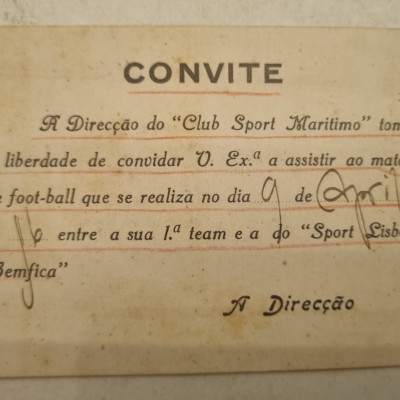 CONVITE
A Direcção do "Club Sport Maritimo" tom
liberdade de convidar V. Ex.ª a assistir ao mat
foot-ball que se realiza no dia 9 de April
entre a sua 1.ª team e a do "Sport Lisb
Bemfica"
A Direcção